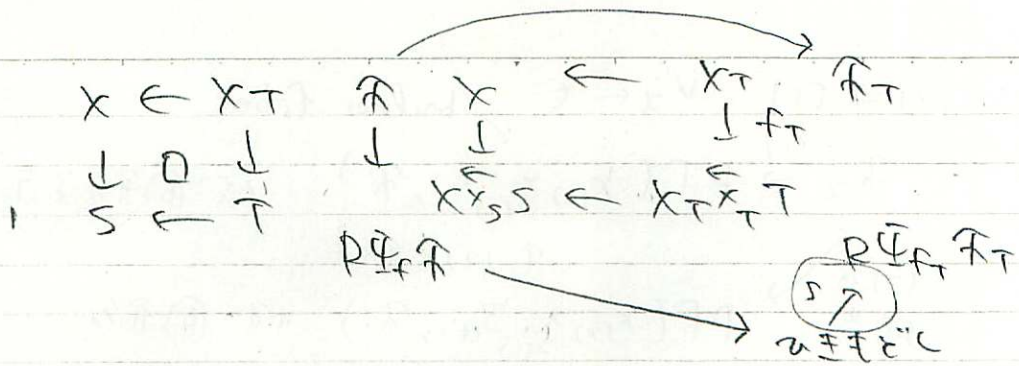 X ← X_T   𝓕   X   ←   X_T   𝓕_T
↓ □ ↓   ↓   ↓   ↓ f_T
S ← T   X ×̄_S S ← X_T ×̄_T T
RΨ_f 𝓕   RΨ_{f_T} 𝓕_T
ひきもどし